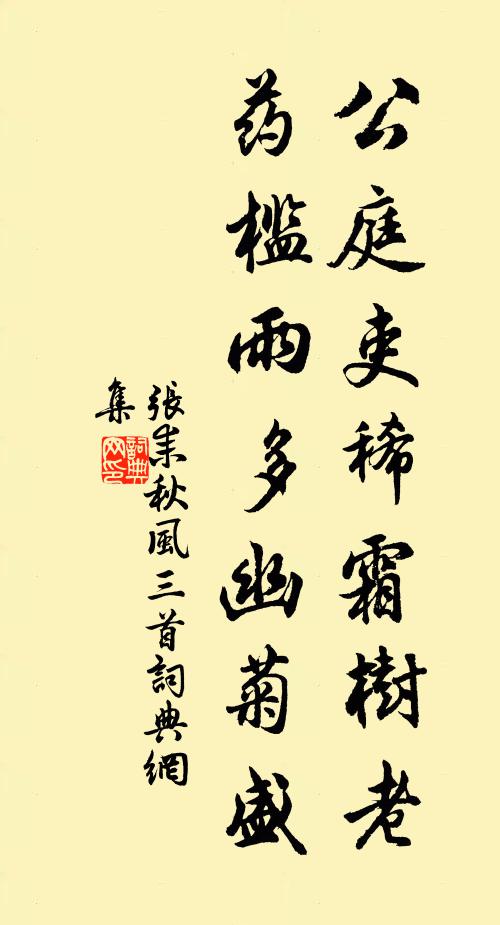 公庭吏稀霜樹老
药槛雨多幽菊盛
張耒秋風三首詞典網
集
詞典
网印